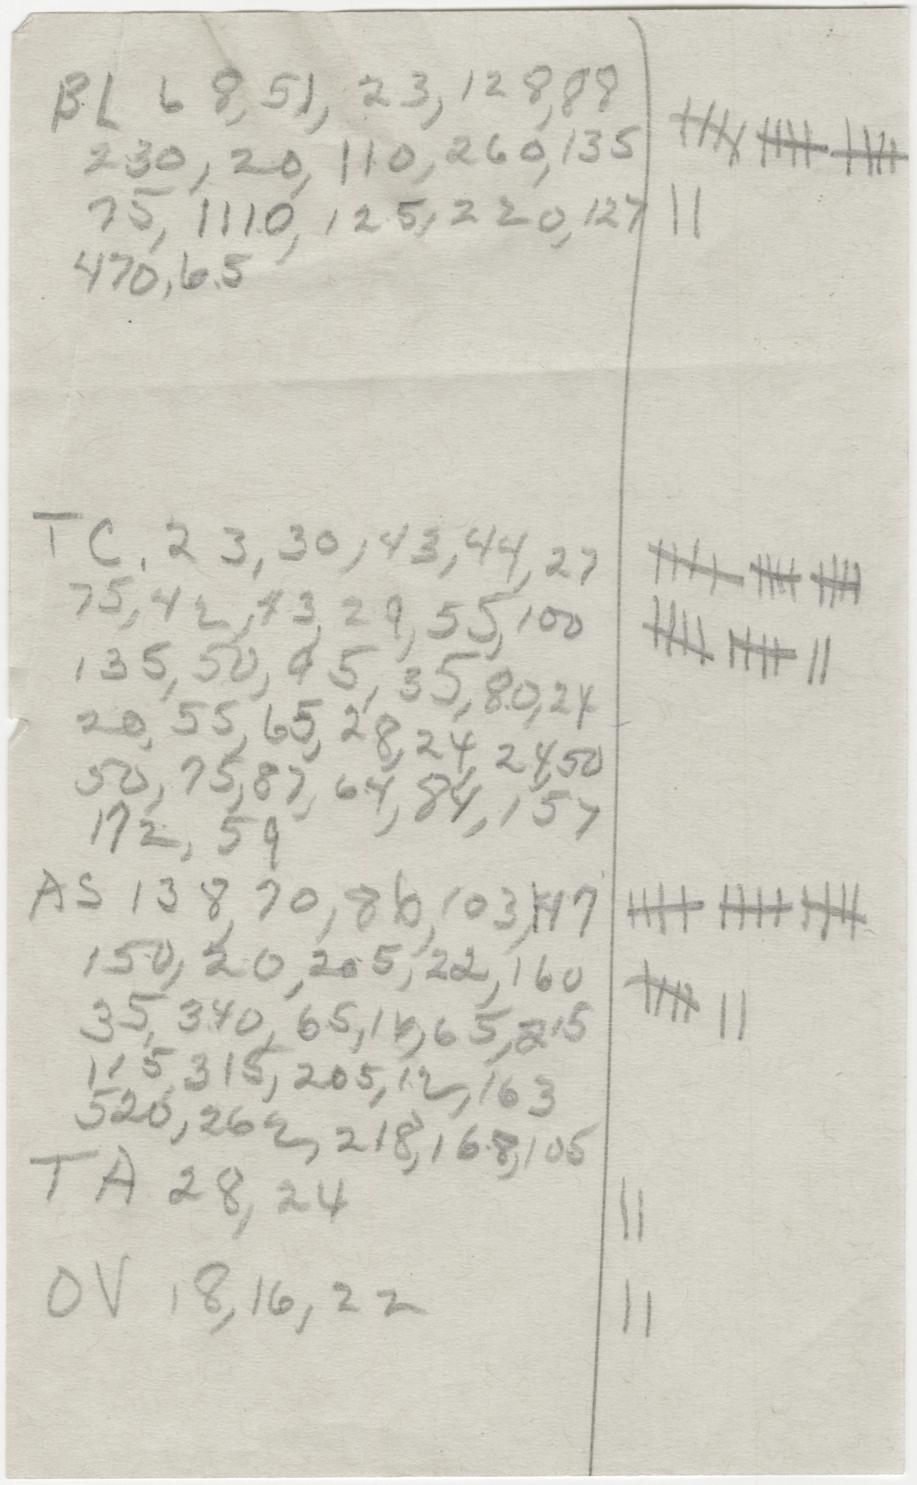 BL 68, 51, 23, 128, 88
230, 20, 110, 260, 135
75, 1110, 125, 220, 127
470, 65
TC. 23, 30, 43, 44, 27
75, 42, 43, 29, 55, 100
135, 50, 95, 35, 80, 24
20, 55, 65, 28, 24, 24, 50
50, 75, 87, 64, 84, 157
172, 59
AS 138, 70, 86, 103, 147
150, 20, 205, 22, 160
35, 340, 65, 16, 65, 215
115, 315, 205, 12, 163
520, 262, 218, 168, 105
TA 28, 24
OV 18, 16, 22